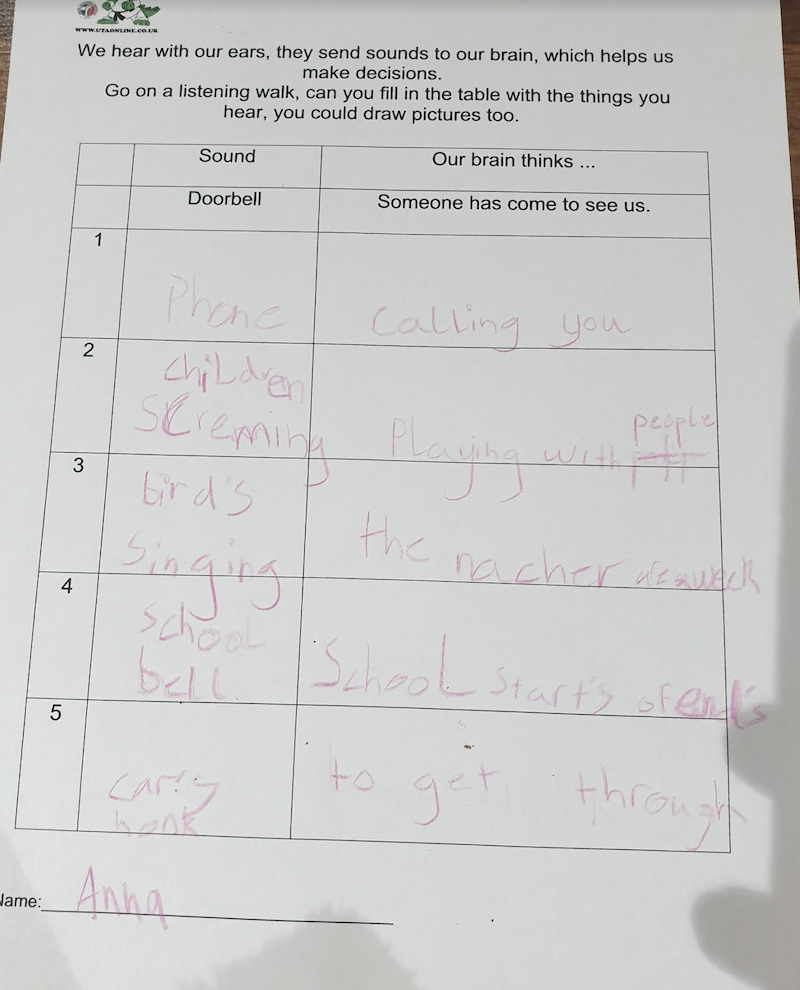 WWW.UTAONLINE.CO.UK
We hear with our ears, they send sounds to our brain, which helps us
make decisions.
Go on a listening walk, can you fill in the table with the things you
hear, you could draw pictures too.
Sound Our brain thinks ...
Doorbell Someone has come to see us.
1
Phone calling you
2
children
Screming Playing with people
3
bird's
singing the nacher
4
school
bell School start's or end's
5
honk to get through
Name: Anna